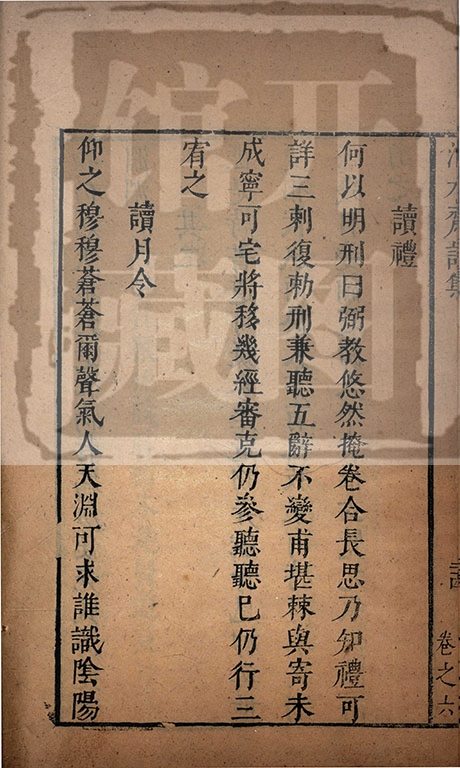 讀禮
何以明刑曰弼教悠然掩卷合長思乃知禮可
詳三刺復勑刑兼聽五辭不變甫堪棘與寄未
成寧可宅將移幾經審克仍參聽聽巳仍行三
宥之
讀月令
仰之穆穆蒼蒼爾聲氣人天淵可求誰識陰陽
卷之六